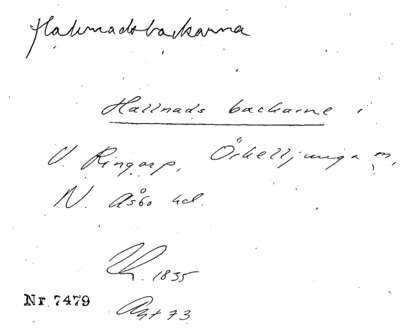 Hallnadsbackarna
Hallnads backarne i
V. Ringarp, Örkelljunga m,
N. Åsbo hd.
1835
Nr 7479
Akt 73